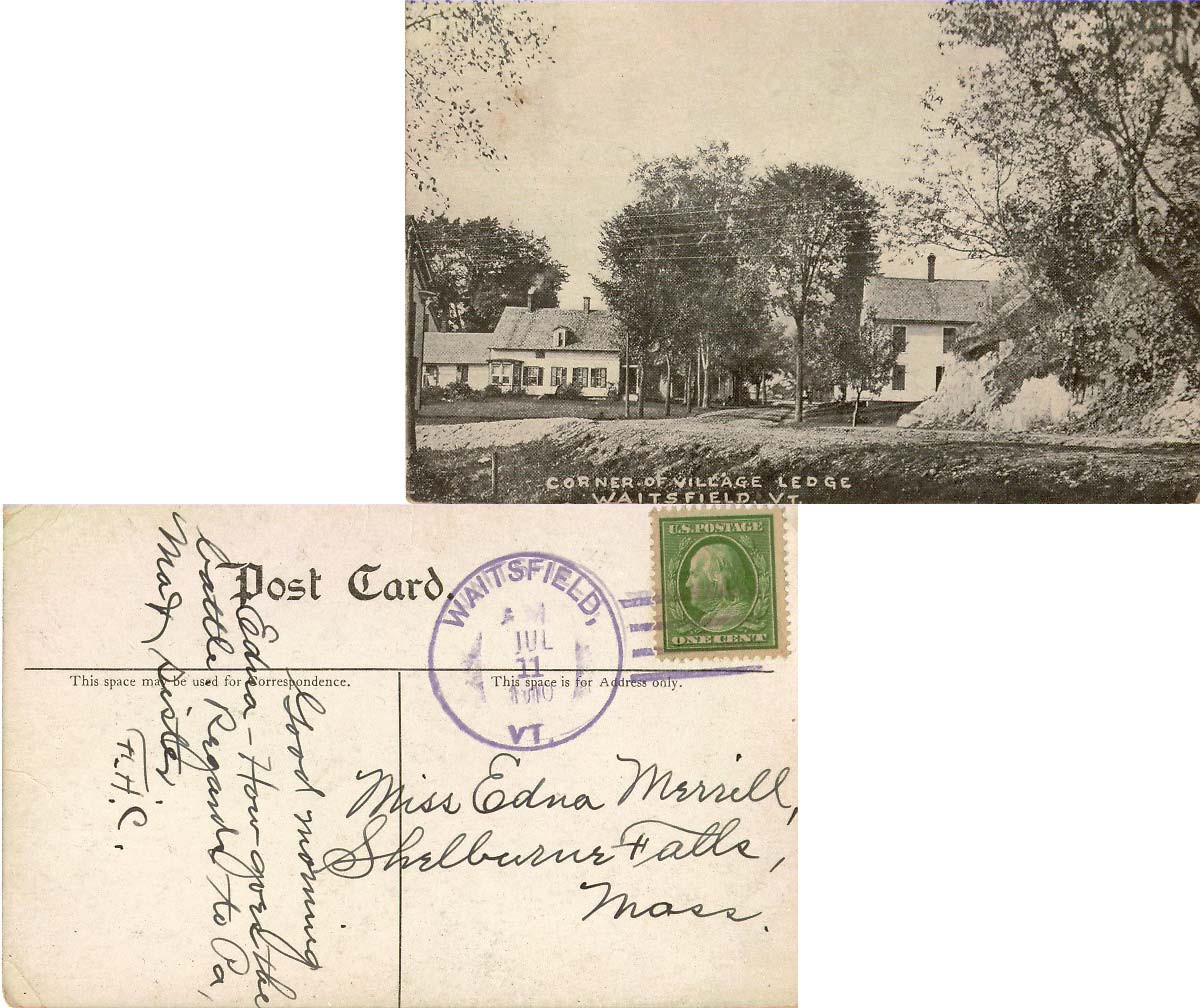 CORNER OF VILLAGE LEDGE
WAITSFIELD, VT.
Post Card.
WAITSFIELD,
A.M.
JUL
11
1910
VT.
U.S. POSTAGE
ONE CENT
This space may be used for Correspondence.
This space is for Address only.
Good morning
Edna - How goes the
battle Regards to Pa,
Ma & sister
H.H.C.
Miss Edna Merrill,
Shelburne Falls,
Mass.